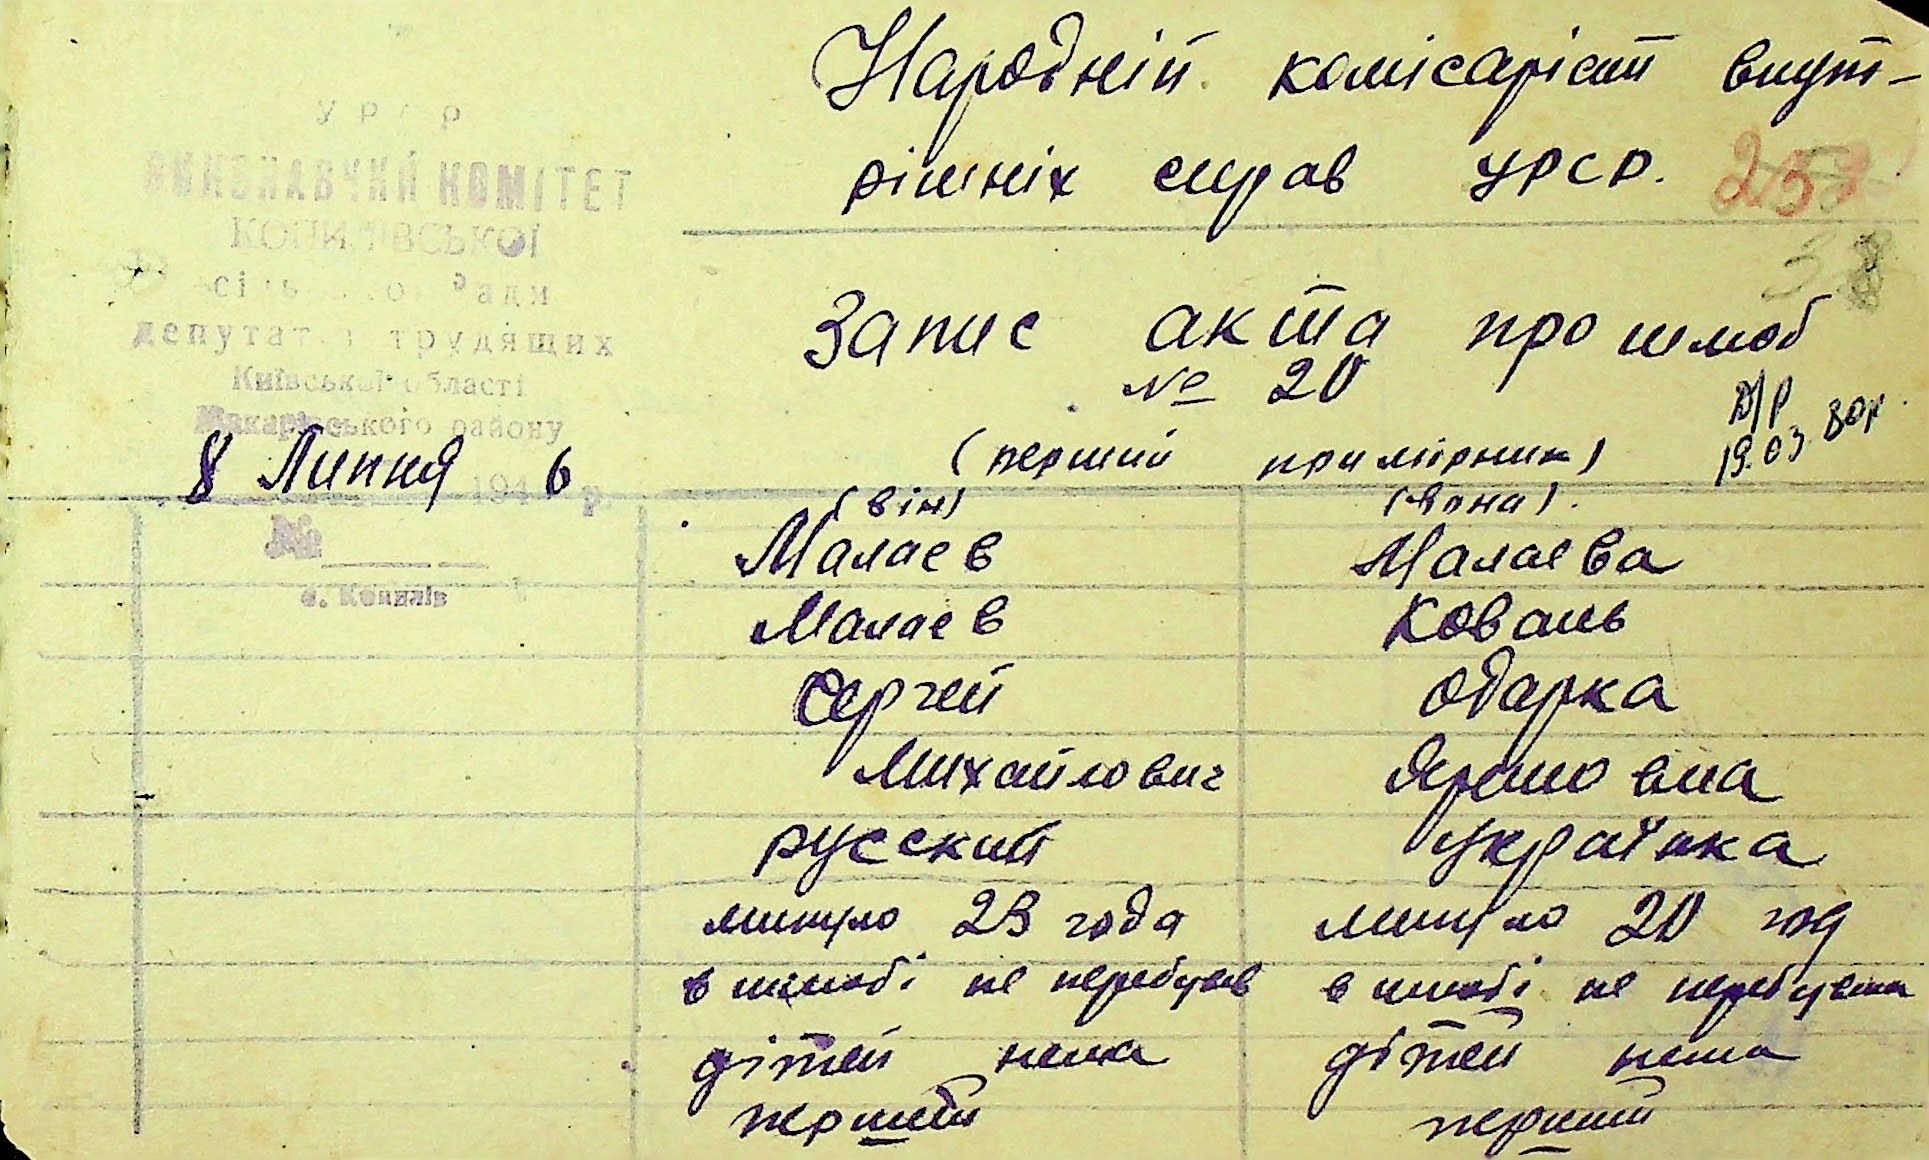 УРСР
ВИКОНАВЧИЙ КОМІТЕТ
КОПИЛІВСЬКОЇ
сільської Ради
депутатів трудящих
Київської області
Макарівського району
8 Липня 1946 р.
№
с. Копилів
Народній комісаріат внут-
рішніх справ УРСР.
257
38
Запис акта про шлюб
№ 20
(перший примірник)
19.03.80р.
(він) (вона).
Малаєв Малаєва
Малаєв Коваль
Сергей Одарка
Михайлович
русский українка
минуло 23 года минуло 20 год
в шлюбі не перебував в шлюбі не перебувала
дітей нема дітей нема
перший перший